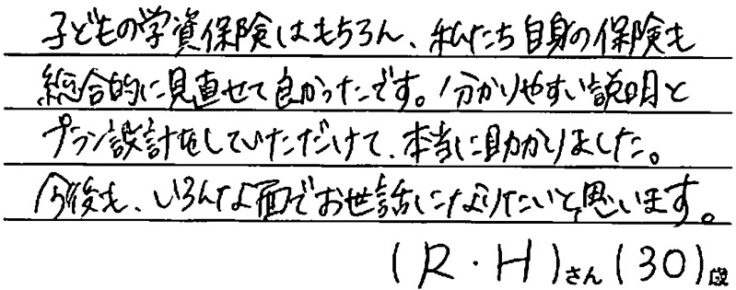 子どもの学資保険はもちろん、私たち自身の保険も
総合的に見直せて良かったです。分かりやすい説明と
プラン設計をしていただけて、本当に助かりました。
今後も、いろんな面でお世話になりたいと思います。
(R・H)さん(30)歳